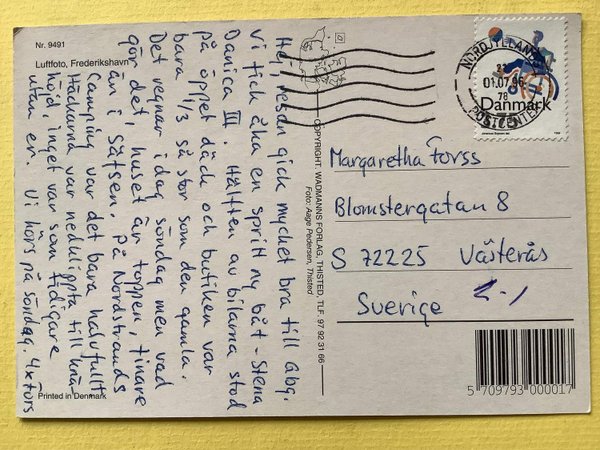 Nr. 9491
Luftfoto, Frederikshavn
Hej, resan gick mycket bra till Gbg.
Vi fick åka en spritt ny båt - Stena
Danica III. Hälften av bilarna stod
på öppet däck och butiken var
bara 1/3 så stor som den gamla.
Det regnar i dag söndag men vad
gör det huset är toppen, finare
än i Sätsen. På Nordstrands
Camping var det bara halvfullt
Häckarna var nedklippta till knä-
höjd, inget var som tidigare
utan er. Vi hörs på söndag.
Printed in Denmark
COPYRIGHT: WADMANNS FORLAG, THISTED, TLF. 97 92 31 66
Foto: Aage Pedersen, Thisted
NORDJYLLANDS
01.07.96
78
POSTCENTER
Danmark
Margaretha Forss
Blomstergatan 8
S 72225 Västerås
Sverige
5 709793 000017